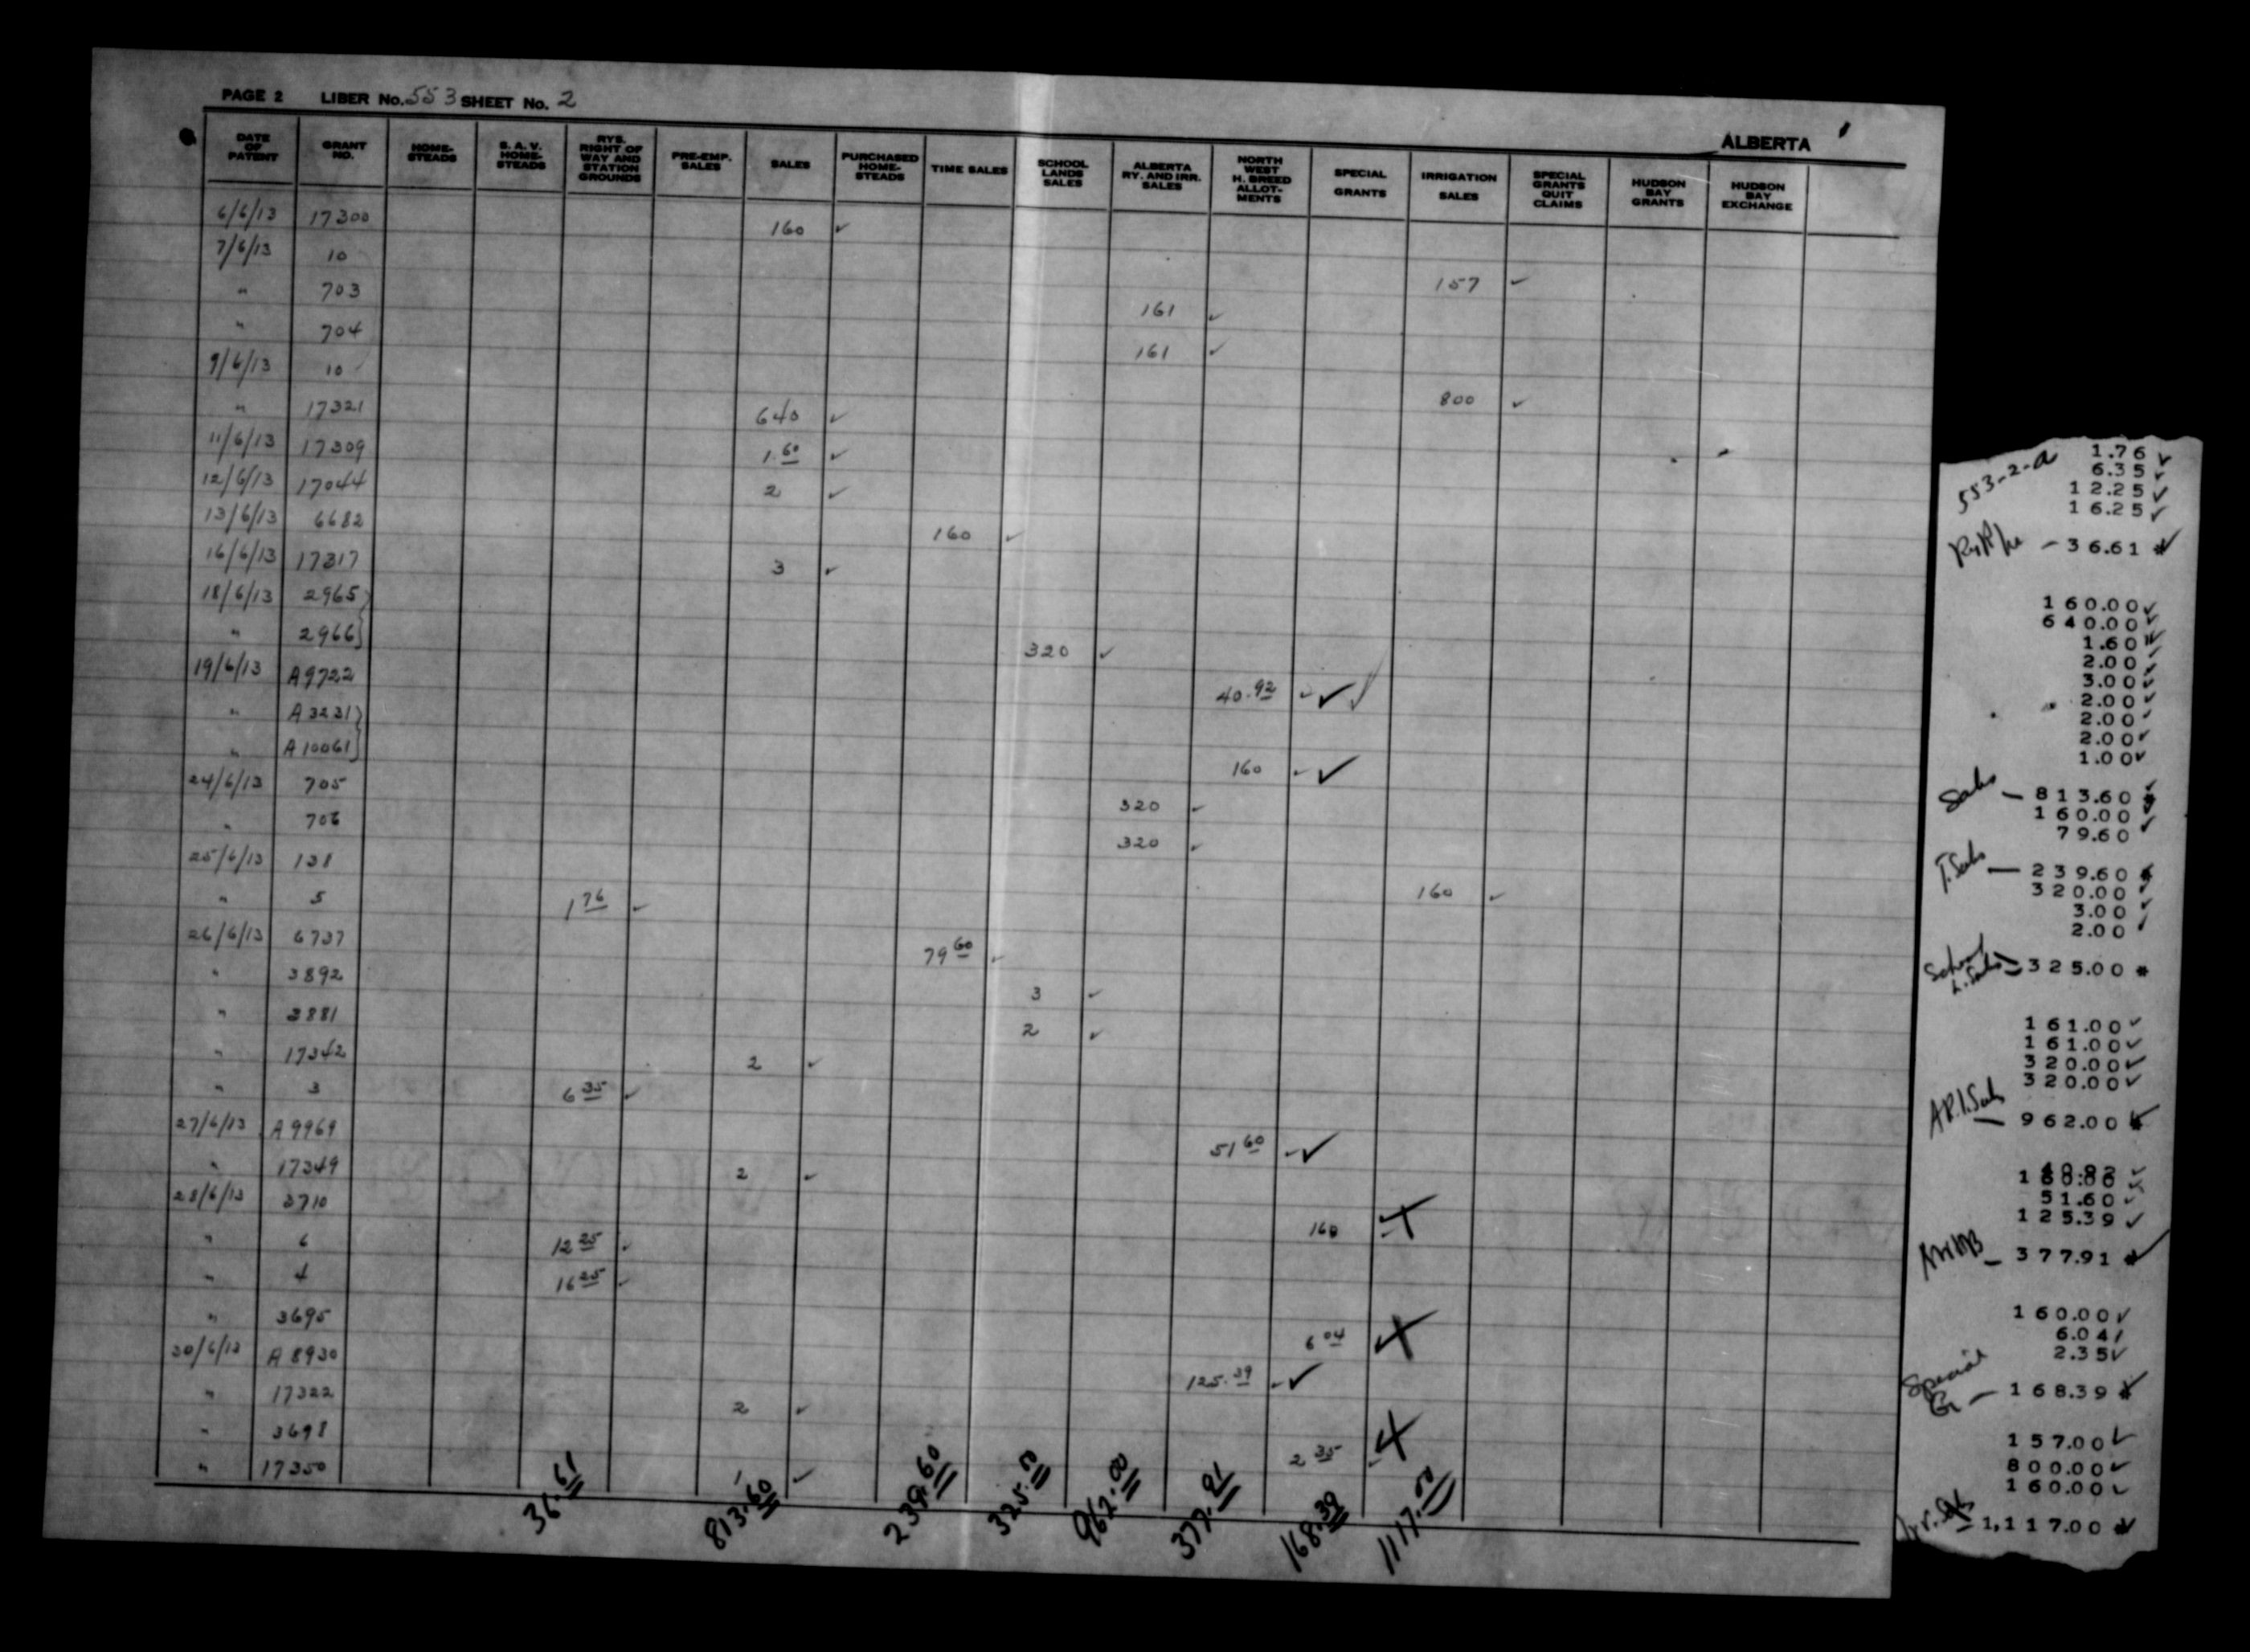 PAGE 2 LIBER No. 553 SHEET No. 2
ALBERTA
DATE OF PATENT | GRANT NO. | HOME-STEADS | S. A. V. HOME-STEADS | RYS. RIGHT OF WAY AND STATION GROUNDS | PRE-EMP. SALES | SALES | PURCHASED HOME-STEADS | TIME SALES | SCHOOL LANDS SALES | ALBERTA RY. AND IRR. SALES | NORTH WEST H. BREED ALLOT-MENTS | SPECIAL GRANTS | IRRIGATION SALES | SPECIAL GRANTS QUIT CLAIMS | HUDSON BAY GRANTS | HUDSON BAY EXCHANGE
6/6/13 17300 160 ✓
7/6/13 10 157 ✓
" 703 161 ✓
" 704 161 ✓
9/6/13 10 800 ✓
" 17321 640 ✓
11/6/13 17309 1.60 ✓
12/6/13 17044 2 ✓
13/6/13 6682 160 ✓
16/6/13 17317 3 ✓
18/6/13 2965 }
" 2966 } 320 ✓
19/6/13 A9722 40.92 ✓ ✓
" A3231 }
" A10061 } 160 ✓ ✓
24/6/13 705 320 ✓
" 706 320 ✓
25/6/13 138 160 ✓
" 5 1 76 ✓
26/6/13 6737 79 60 ✓
" 3892 3 ✓
" 3881 2 ✓
" 17342 2 ✓
" 3 6 35 ✓
27/6/13 A9969 51 60 ✓ ✓
" 17349 2 ✓
28/6/13 3710 160 X
" 6 12 25 ✓
" 4 16 25 ✓
" 3695 6 04 X
30/6/13 A8930 125.39 ✓ ✓
" 17322 2 ✓
" 3698 2 35 ✓ X
" 17350 1 ✓
36.61 813.60 239.60 325.00 962.00 377.91 168.39 1117.00
553-2-a
1.76 ✓
6.35 ✓
12.25 ✓
16.25 ✓
36.61 * ✓
160.00 ✓
640.00 ✓
1.60 ✓
2.00 ✓
3.00 ✓
2.00 ✓
2.00 ✓
2.00 ✓
1.00 ✓
Sales — 813.60 * ✓
160.00 ✓
79.60 ✓
T. Sales — 239.60 *
320.00 ✓
3.00 ✓
2.00 ✓
School L. Sales — 325.00 *
161.00 ✓
161.00 ✓
320.00 ✓
320.00 ✓
A.R.I. Sales — 962.00 * ✓
40.92 ✓
160.00 ✓
51.60 ✓
125.39 ✓
NWHB — 377.91 * ✓
160.00 ✓
6.04 ✓
2.35 ✓
Special G — 168.39 * ✓
157.00 ✓
800.00 ✓
160.00 ✓
1,117.00 * ✓